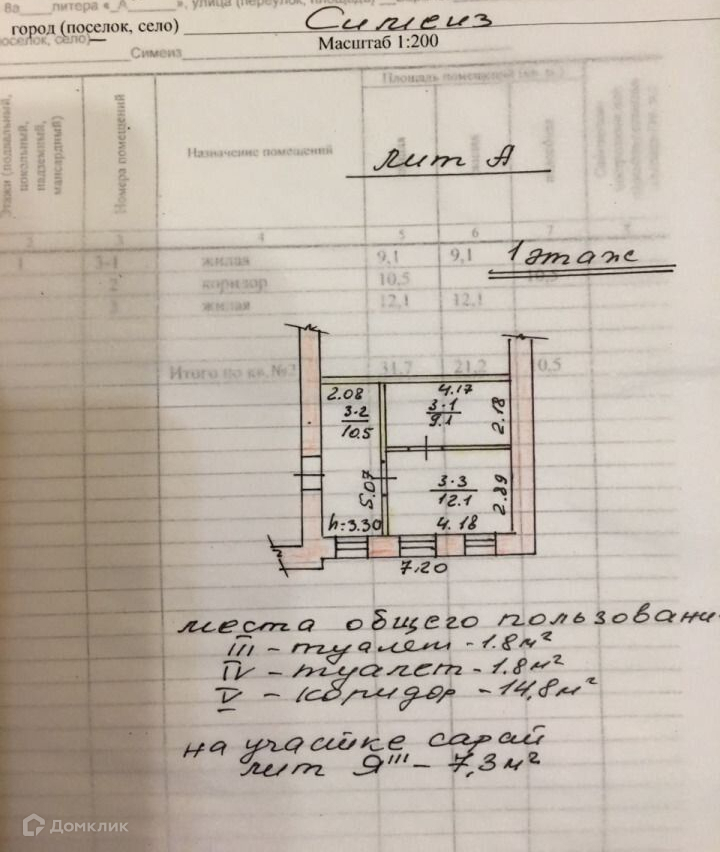 8а литера «_А_», улица (переулок, площадь)
город (поселок, село) Симеиз
поселок, село)
Масштаб 1:200
Симеиз
Площадь помещений (кв. м.)
Этажи (подвальный, цокольный, надземный, мансардный)
Номера помещений
Назначение помещений
лит А
2 3 4 5 6 7 8
1 3-1 жилая 9,1 9,1
1 этаж
2 коридор 10,5 10,5
3 жилая 12,1 12,1
Итого по кв.№3 31,7 21,2 10,5
2.08 4.17
3-2 3-1 2.18
10.5 9.1
5.07 3-3 2.89
12.1
h=3.30 4.18
7.20
места общего пользовани
III - туалет - 1.8 м²
IV - туалет - 1.8 м²
V - коридор - 14,8 м²
на участке сарай
лит Я''' - 7,3 м²
Домклик